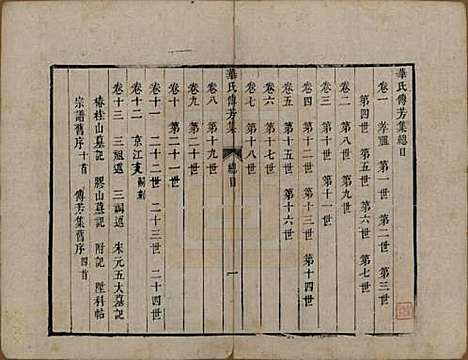 華氏傳芳集總目
卷一 孝祖 第一世 第二世 第三世
第四世 第五世 第六世 第七世
卷二 第八世 第九世 第十世
卷三 第十一世
卷四 第十二世 第十三世 第十四世
卷五 第十五世 第十六世
卷六 第十七世
卷七 第十八世
華氏傳芳集 總目 一
卷八 第十九世
卷九 第二十世
卷十 第二十一世
卷十一 二十二世 二十三世 二十四世
卷十二 京江支
卷十三 三祖述 三祠述 宋元五大墓記
椿桂山墓記 膠山墓記 附記 墜科帖
宗譜舊序十首 傳芳集舊序四首